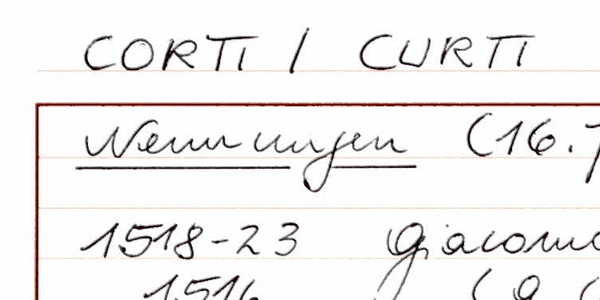 CORTI / CURTI
Nennungen (16.
1518-23 Giacomo
1516